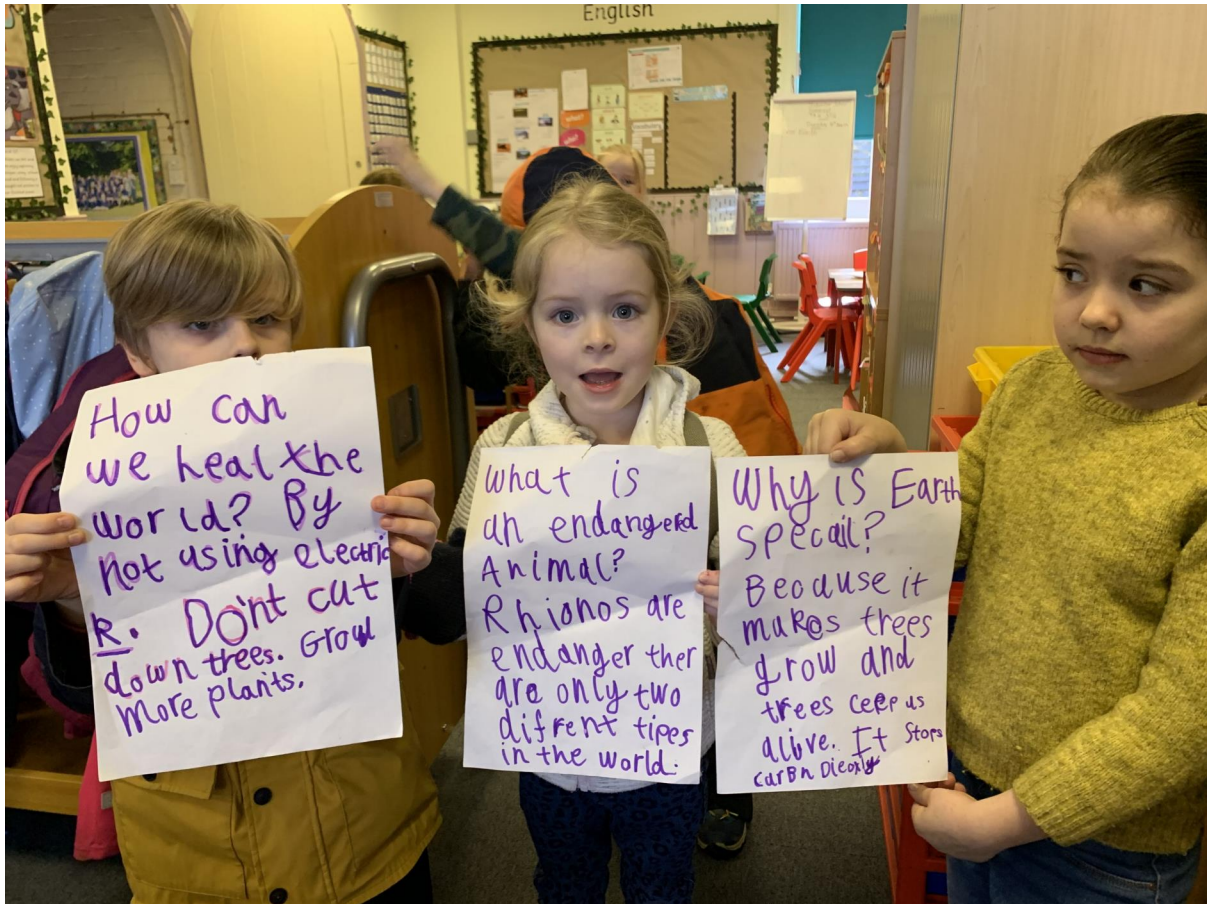 English
How can
we heal the
world? By
not using electric
R. Do'nt cut
down trees. Grow
more plants.
what is
an endangered
Animal?
Rhionos are
endanger ther
are only two
difrent tipes
in the world.
Why is Earth
specail?
Because it
makes trees
grow and
trees ceep us
alive. It stops
carBn Dieoxly